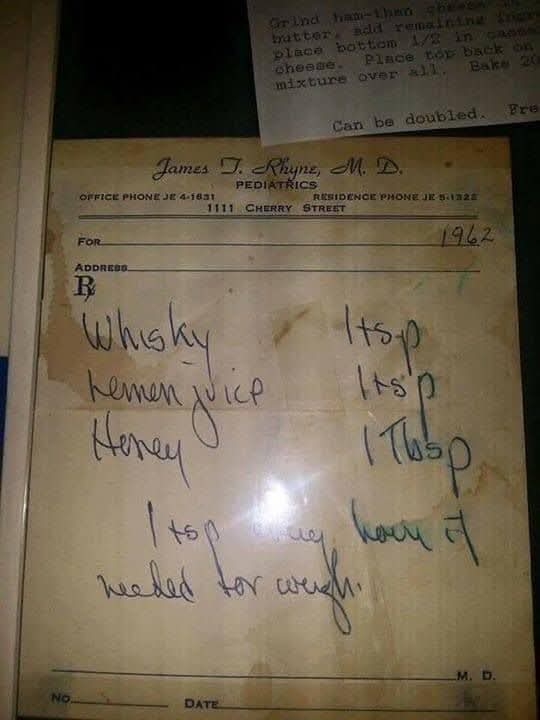 Grind ham-than cheese
butter, add remaining
place bottom 1/2 in
cheese. Place top back on
mixture over all. Bake 20
Can be doubled. Fre
James T. Rhyne, M. D.
PEDIATRICS
OFFICE PHONE JE 4-1631 RESIDENCE PHONE JE 5-1322
1111 CHERRY STREET
FOR 1962
ADDRESS
℞
Whisky 1 tsp
Lemon juice 1 tsp
Honey 1 Tbsp
1 tsp every hour if
needed for cough.
M. D.
NO. DATE